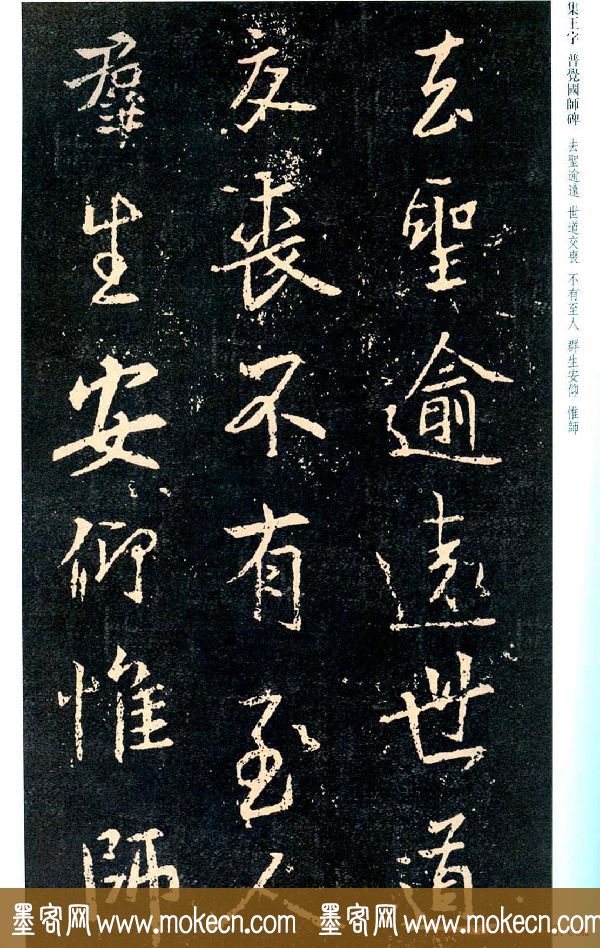 集王字 普覺國師碑 去聖逾遠 世道交喪 不有至人 群生安仰 惟師
去聖逾遠世道
交喪不有至人
群生安仰惟師
墨客网 www.mokecn.com 墨客网 www.mokecn.com